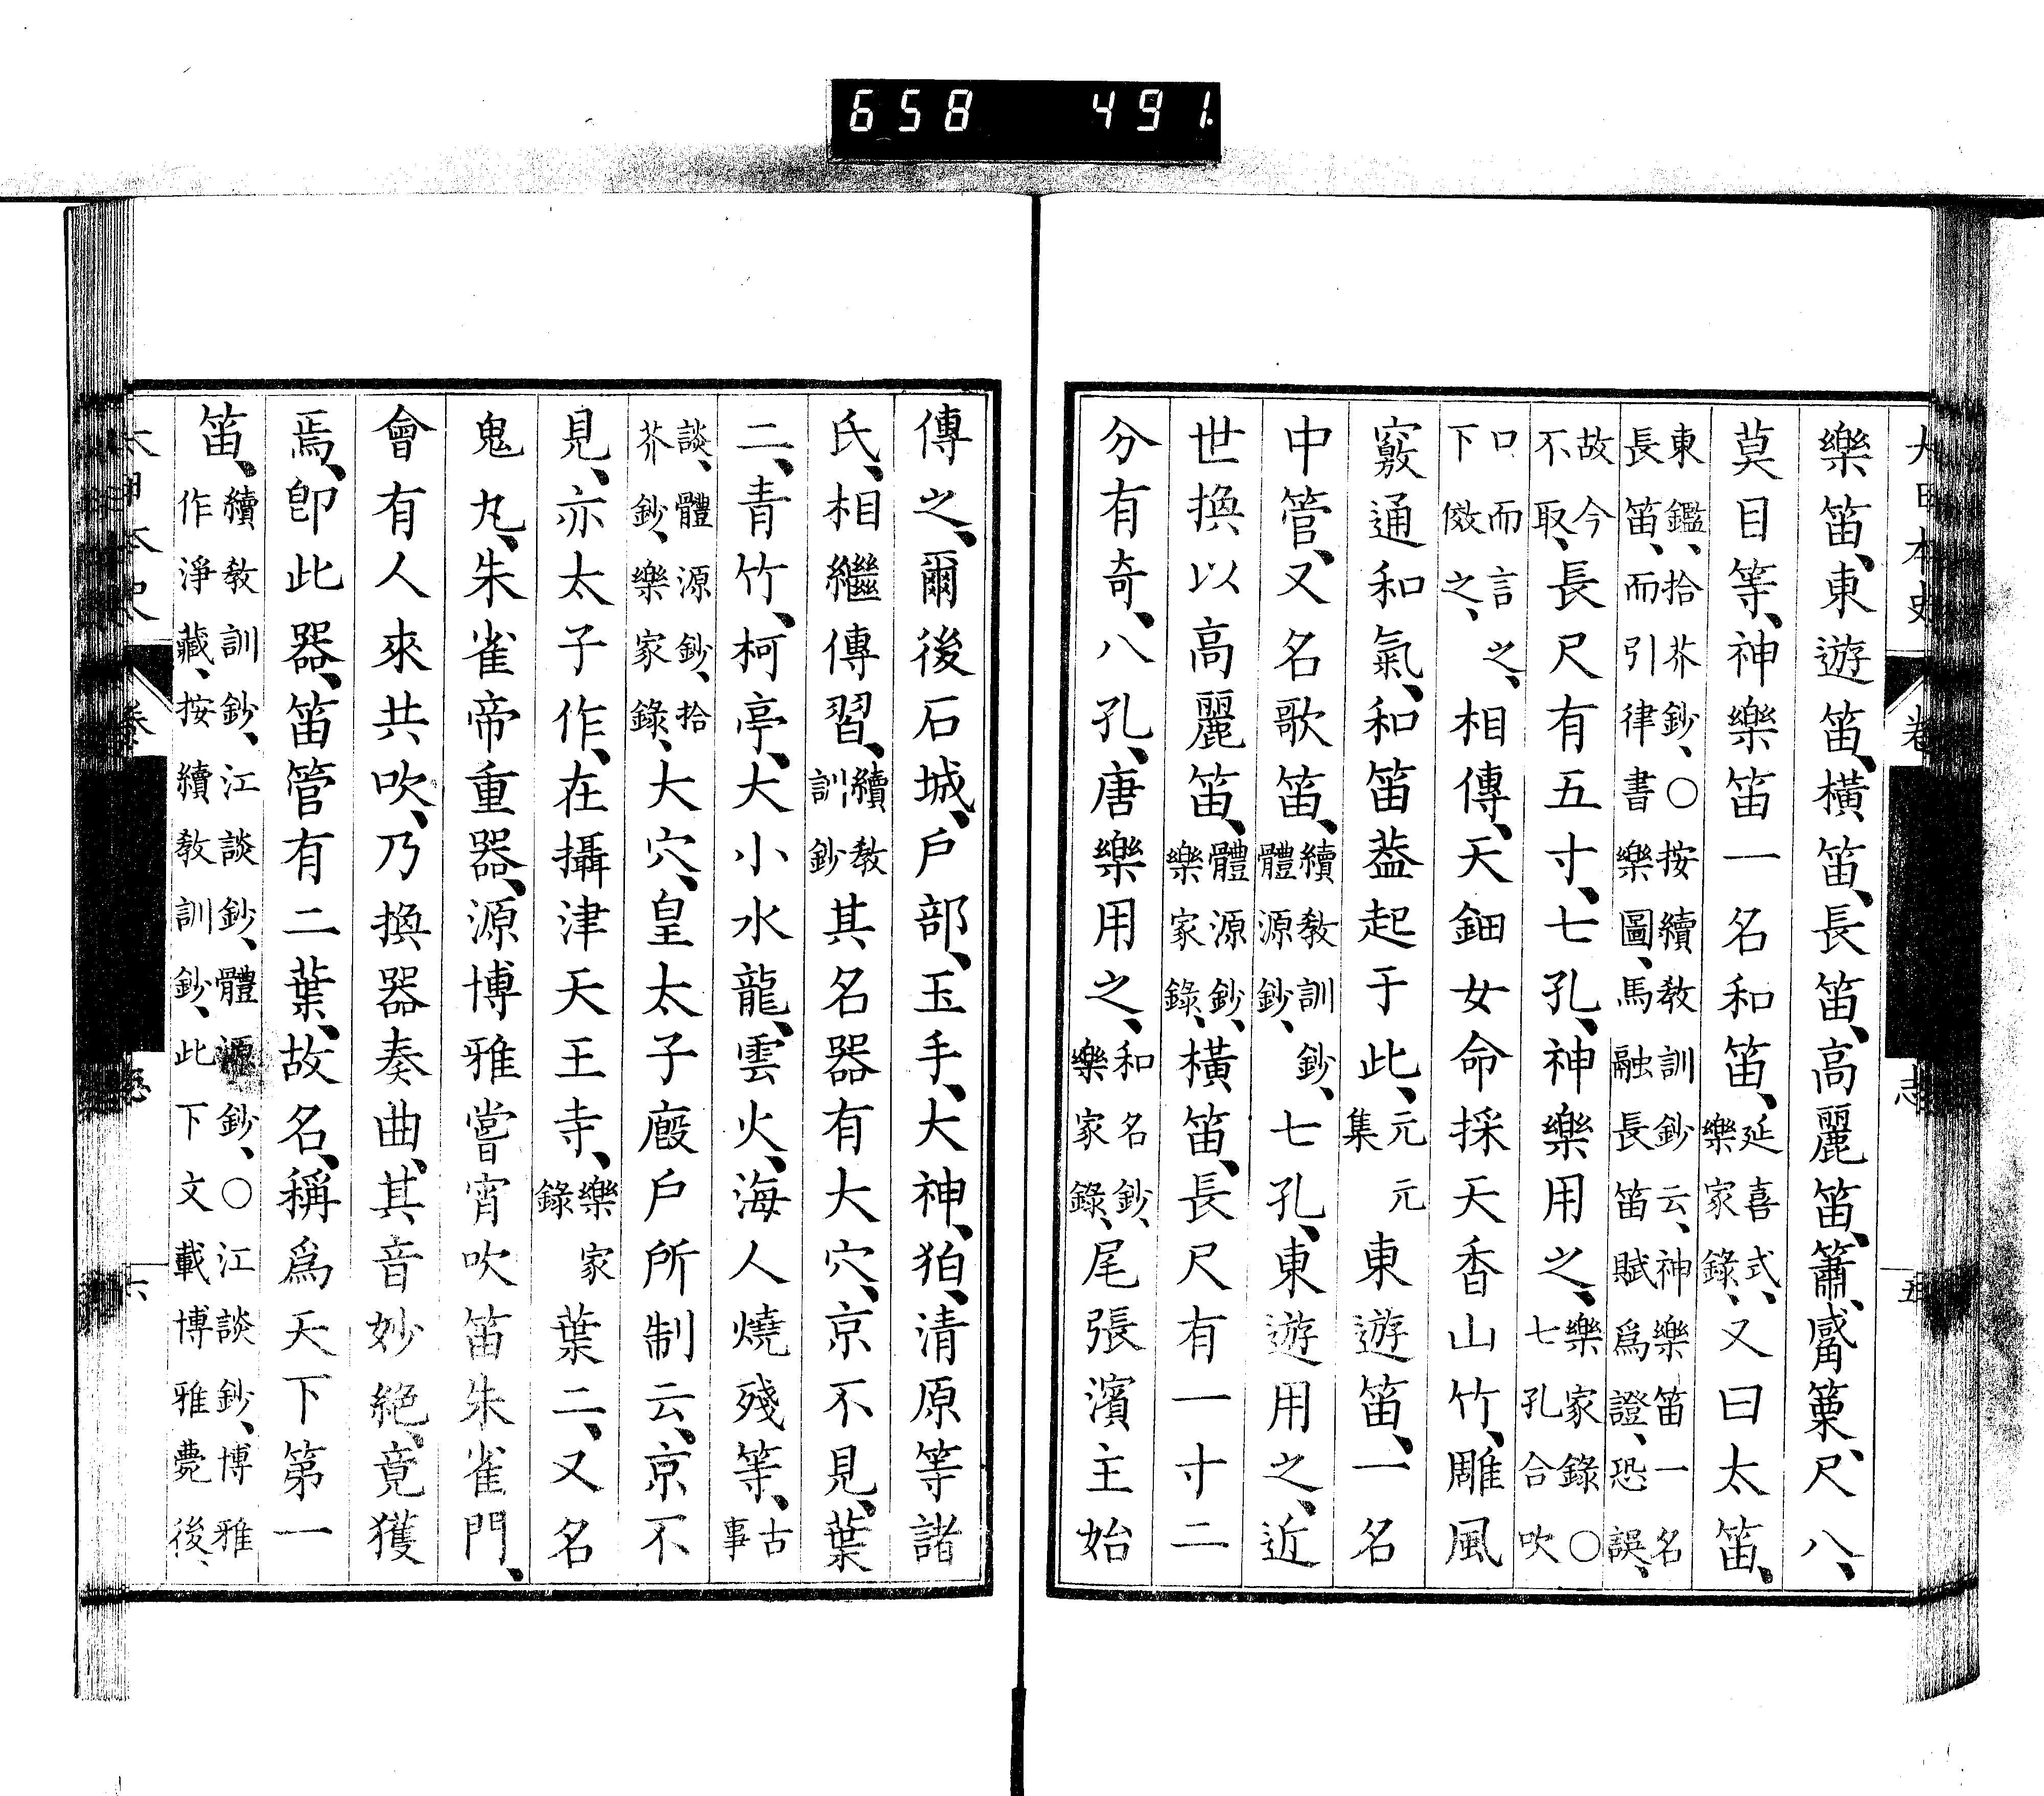 658 491.
大日本史 卷 志 五
樂笛、東遊笛、橫笛、長笛、高麗笛、簫、觱篥、尺八、
莫目等、神樂笛一名和笛、延喜式、樂家錄、又曰太笛、
東鑑、拾芥鈔、〇按續教訓鈔云、神樂笛一名長笛、而引律書樂圖、馬融長笛賦爲證、恐誤、
故今不取、長尺有五寸、七孔、神樂用之、樂家錄〇七孔合吹
口而言之、下倣之、相傳、天鈿女命採天香山竹、雕風
竅通和氣、和笛葢起于此、元元集 東遊笛、一名
中管、又名歌笛、續教訓鈔、體源鈔、七孔、東遊用之、近
世換以高麗笛、體源鈔、樂家錄、橫笛、長尺有一寸二
分有奇、八孔、唐樂用之、和名鈔、樂家錄、尾張濱主始
傳之、爾後石城、戶部、玉手、大神、狛、清原等諸
氏、相繼傳習、續教訓鈔 其名器有大穴、京不見、葉
二、青竹、柯亭、大小水龍、雲火、海人燒殘等、古事
談、體源鈔、拾芥鈔、樂家錄、大穴、皇太子廄戶所制云、京不
見、亦太子作、在攝津天王寺、樂家錄 葉二、又名
鬼丸、朱雀帝重器、源博雅嘗宵吹笛朱雀門、
會有人來共吹、乃換器奏曲、其音妙絕、竟獲
焉、卽此器、笛管有二葉、故名、稱爲天下第一
笛、續教訓鈔、江談鈔、體源鈔、〇江談鈔、博雅作淨藏、按續教訓鈔、此下文載博雅薨後、
大日本史 卷 志 六